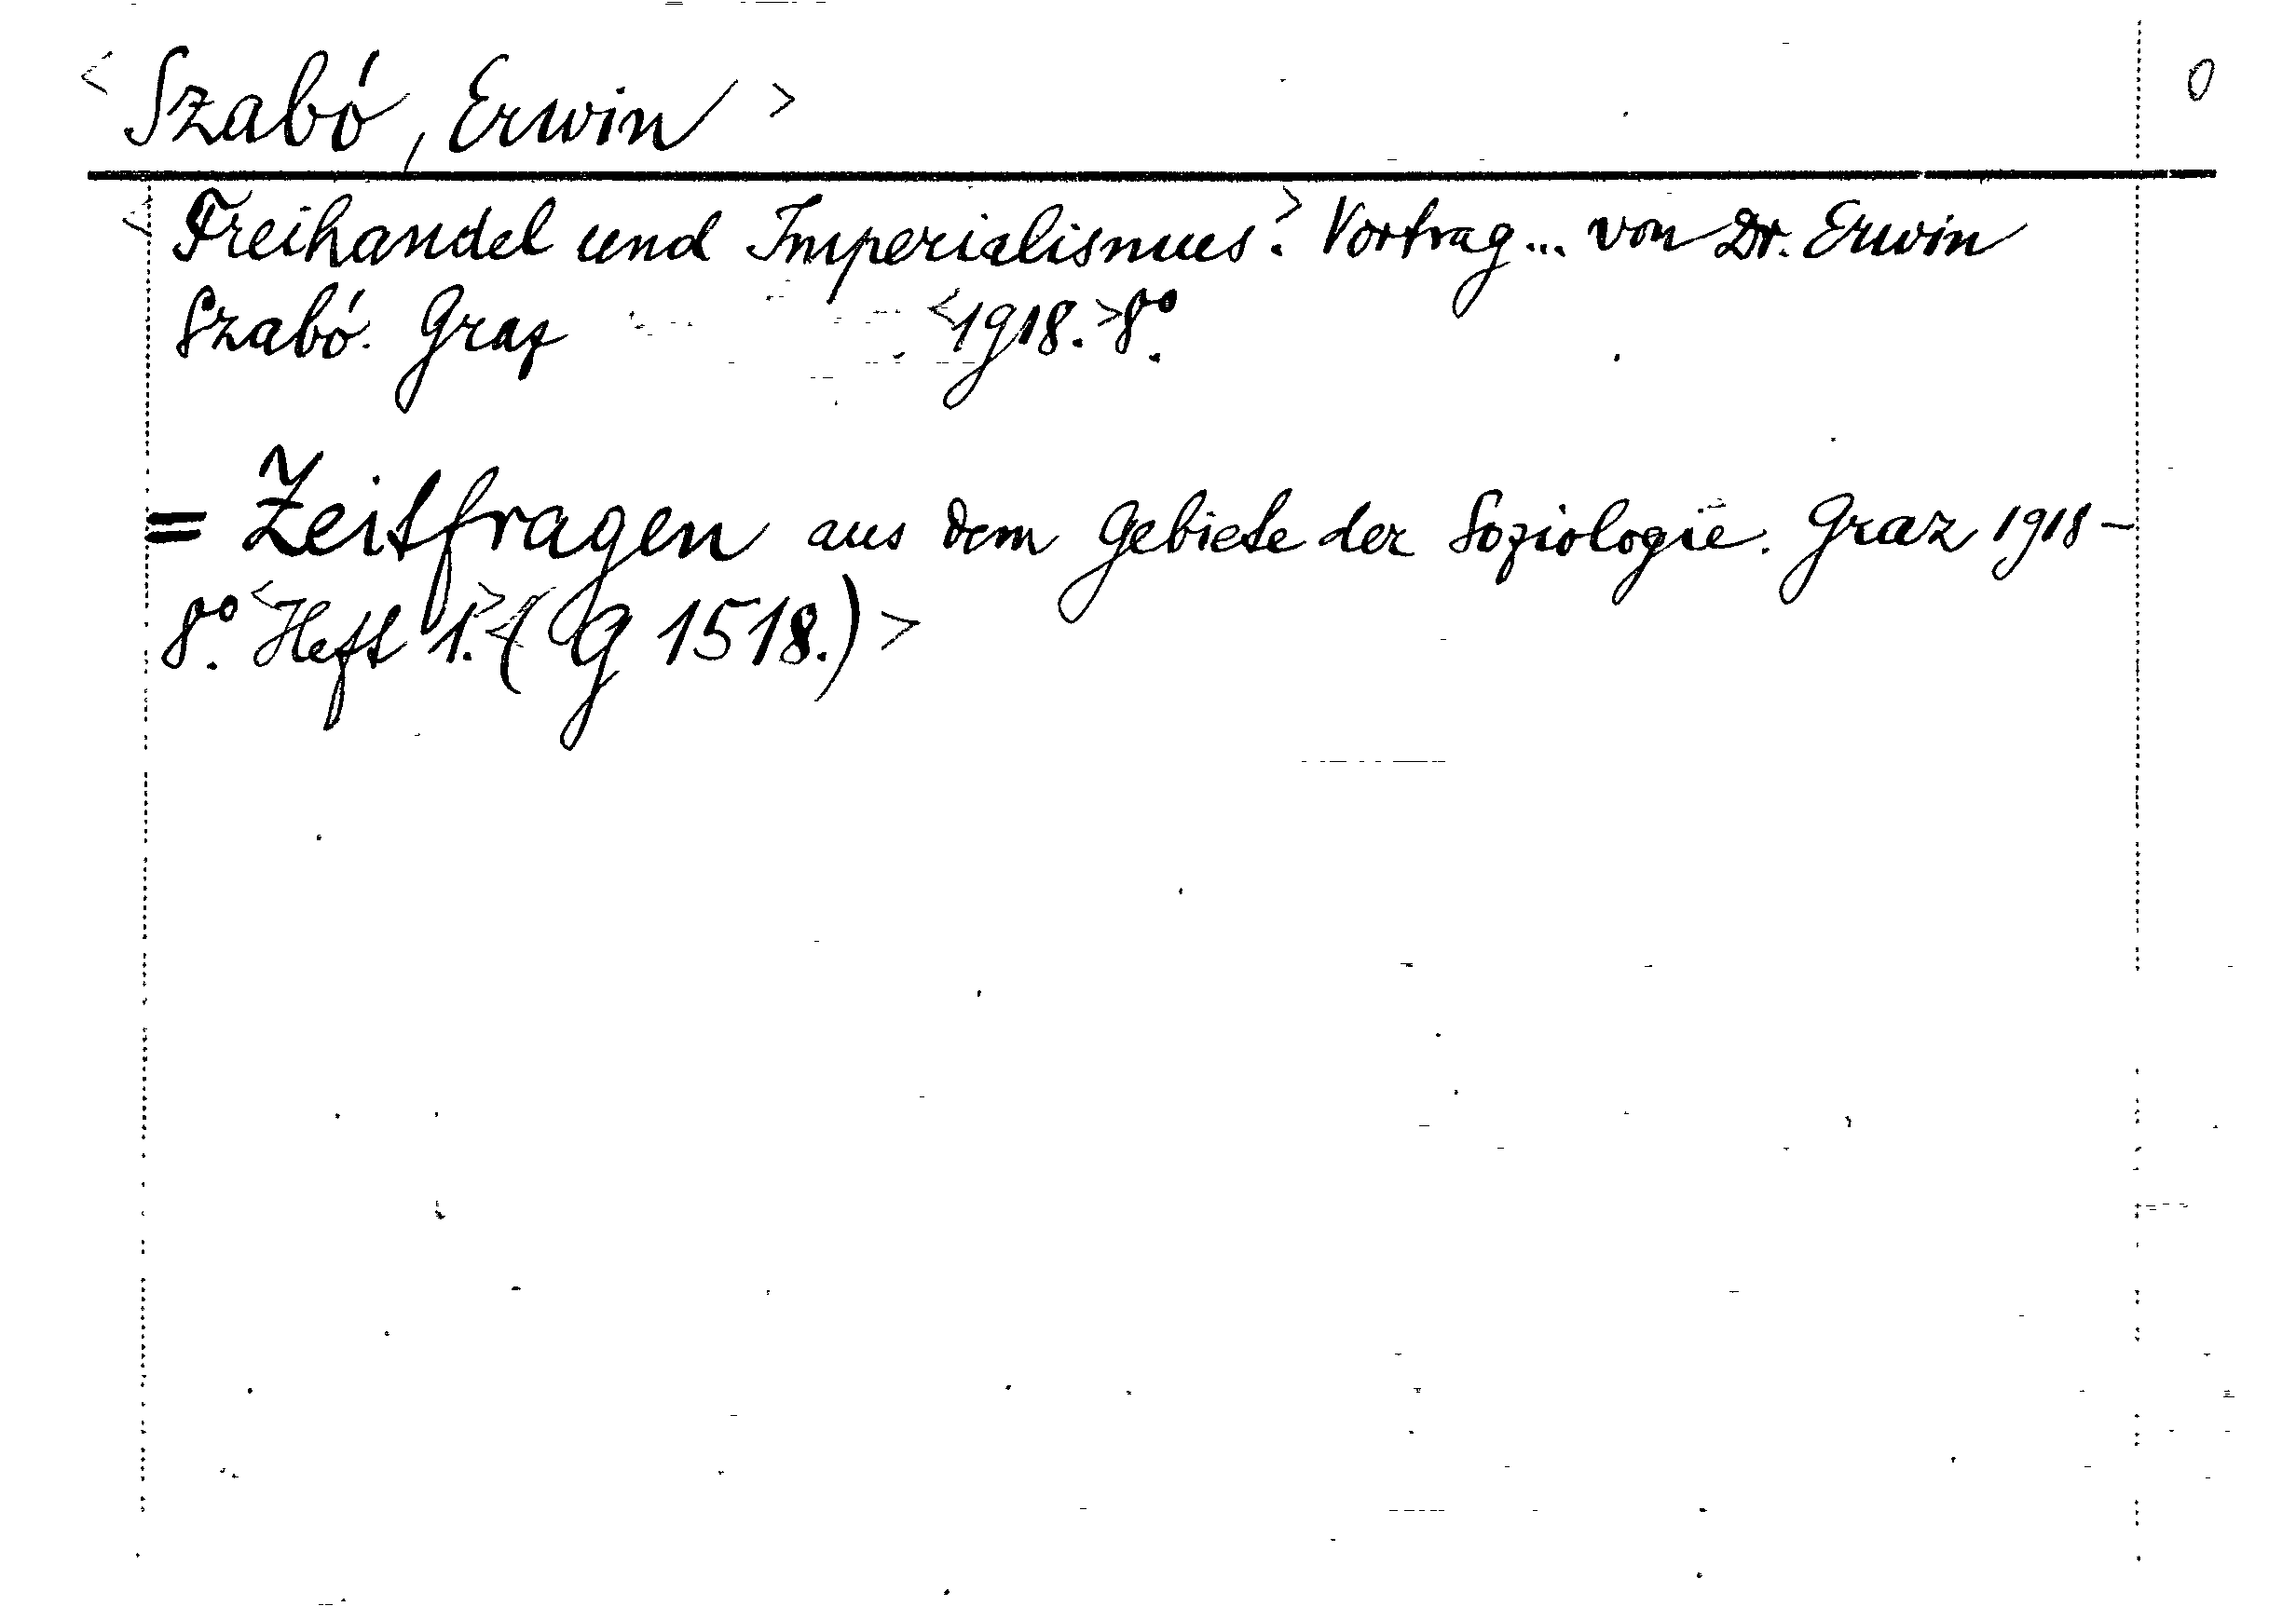 <Szabó, Erwin> 0
<Freihandel und Imperialismus.> Vortrag... von Dr. Erwin
Szabó. Graz <1918.> 8°.
= Zeitfragen aus dem Gebiete der Soziologie. Graz 1918-
8°. <Heft 1.> <(G 1518.)>